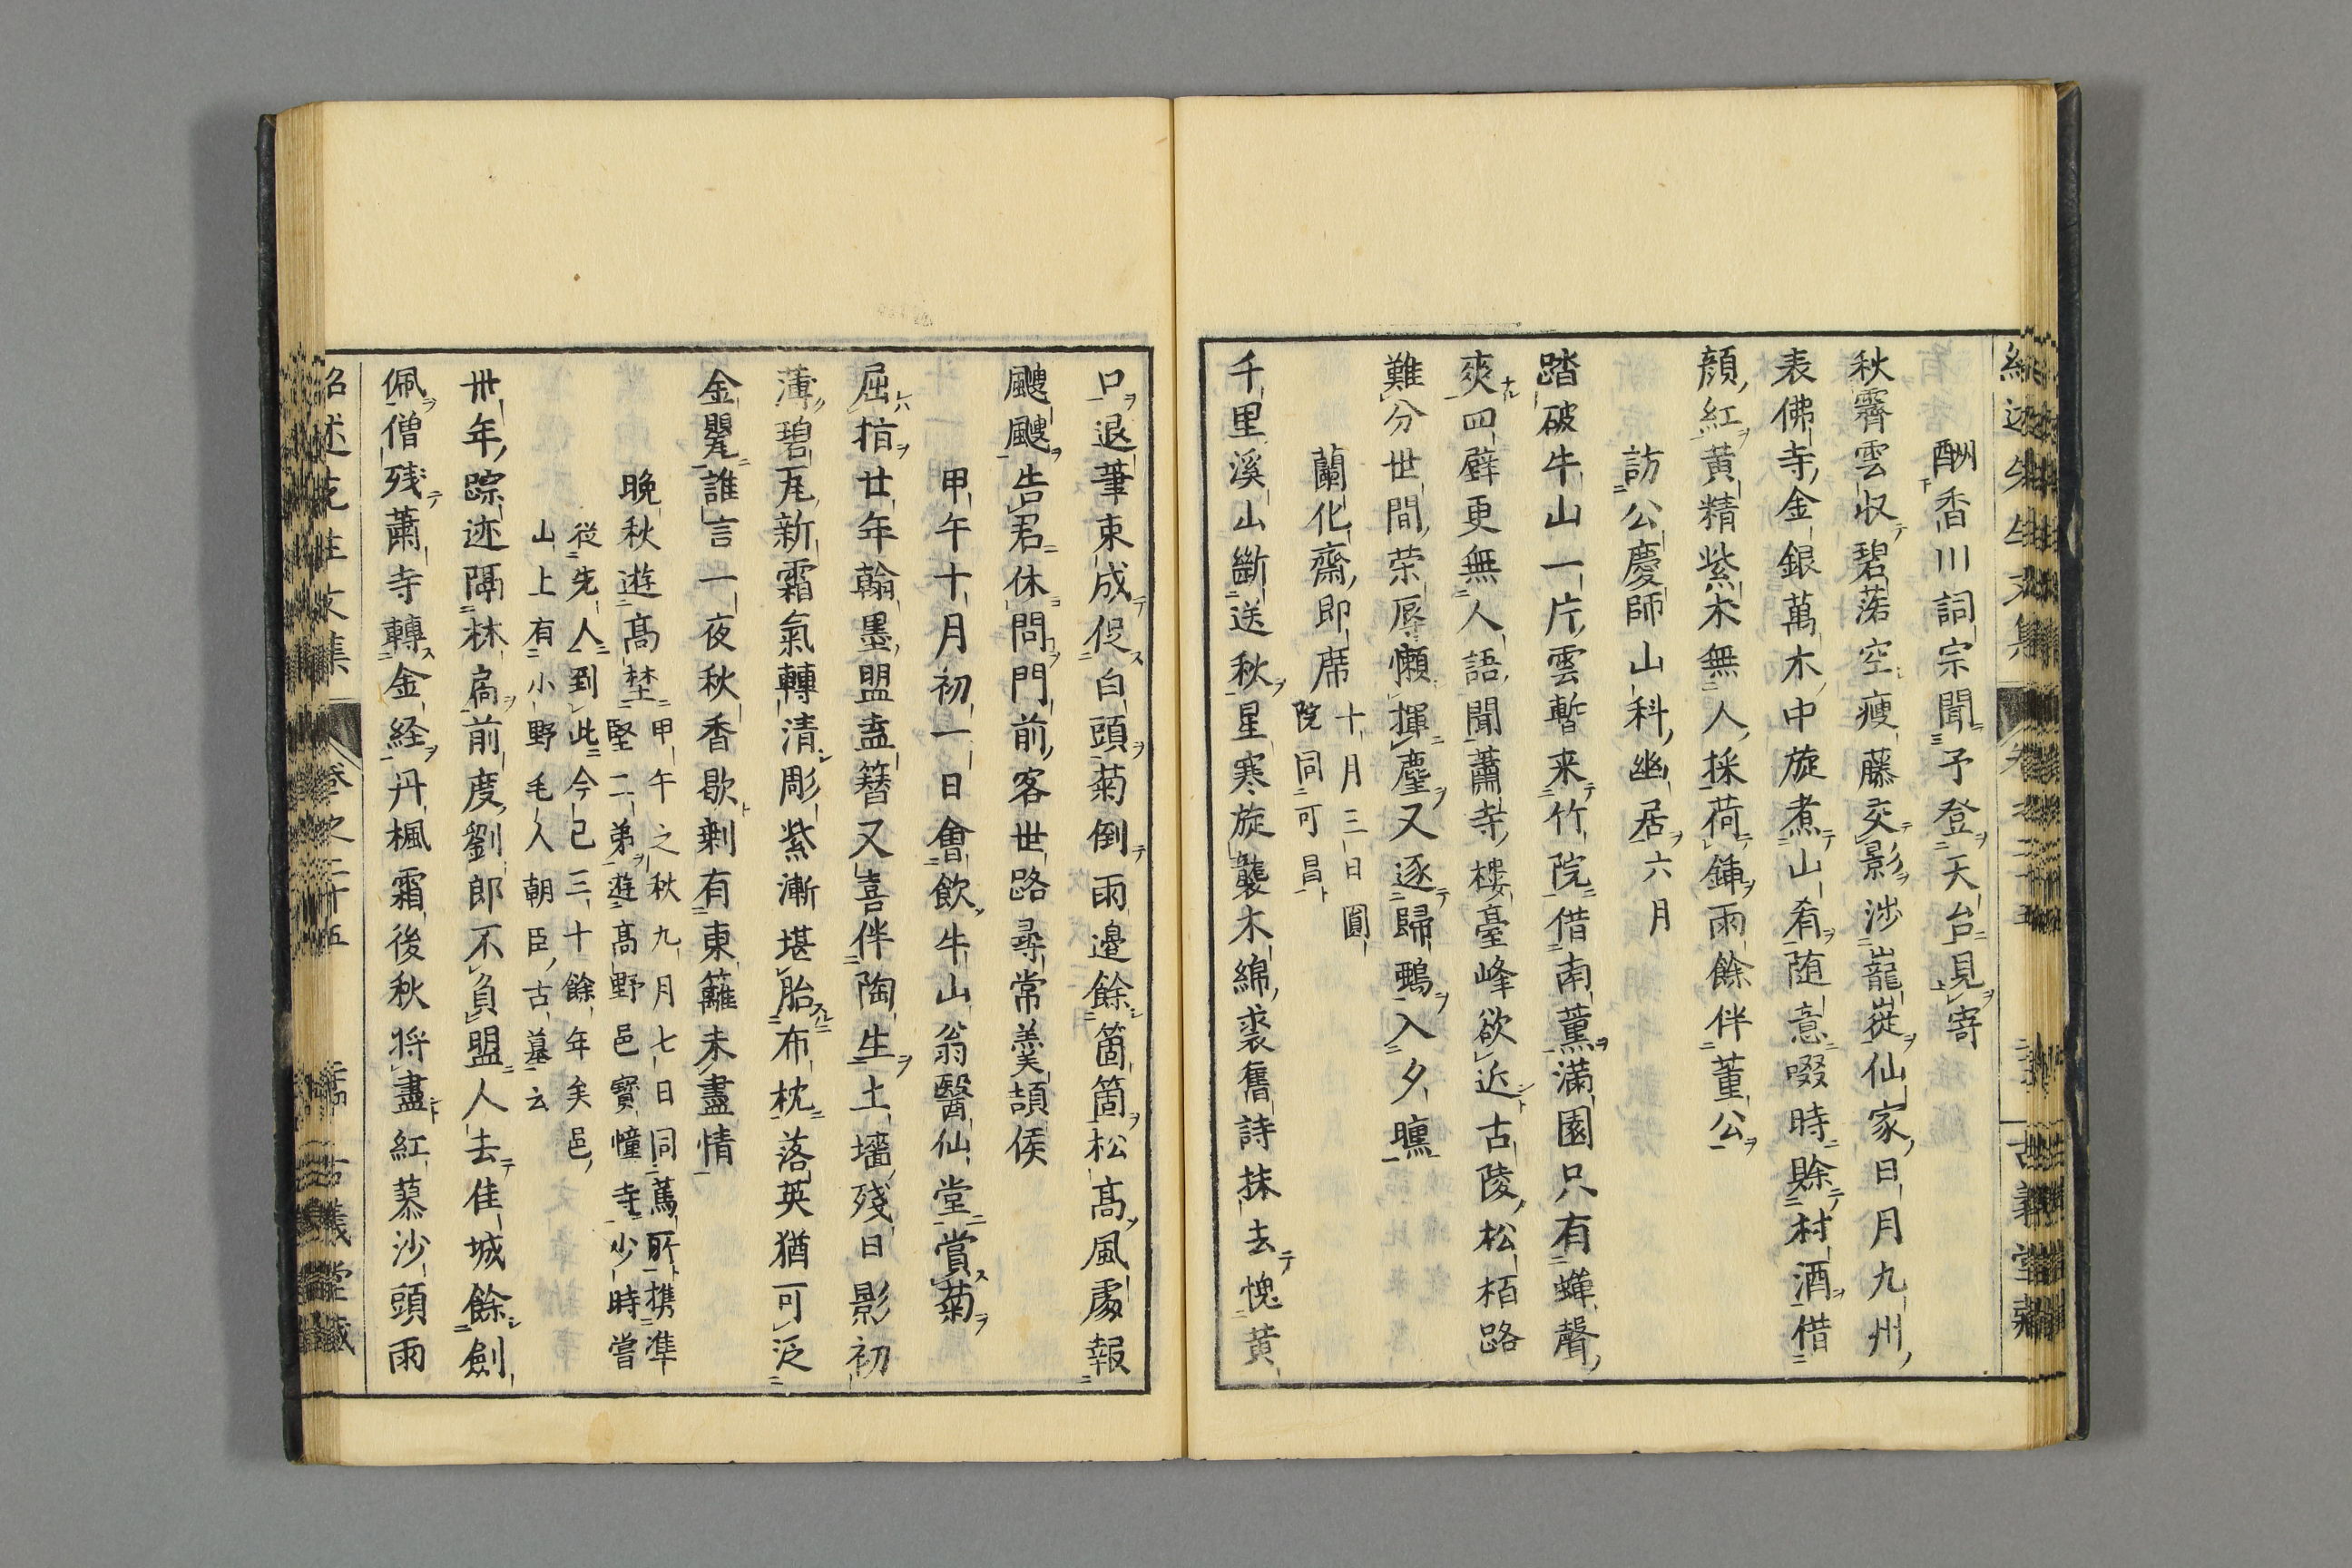 酬香川詞宗聞予登天台見寄
秋霽雲收碧落空瘦藤交影渉巃嵸仙家日月九州
表佛寺金銀萬木中旋煮山肴随意啜時賖村酒借
顔紅黄精紫朮無人採荷鍤雨餘伴董公
訪公慶師山科幽居六月
踏破牛山一片雲暫来竹院借南薫満園只有蝉聲
爽四壁更無人語聞蕭寺樓臺峰欲近古陵松栢路
難分世間荣辱懶揮麈又逐歸鴉入夕曛
蘭化齋即席
十月三日圓
院同可昌
千里溪山斷送秋星寒旋襲木綿裘舊詩抹去愧黄
口退筆束成促白頭菊倒雨邉餘箇箇松髙風處報
颼颼告君休問門前客世路尋常羮頡侯
甲午十月初一日會飲牛山翁醫仙堂賞菊
屈指廿年翰墨盟盍簮又喜伴陶生土墻殘日影初
薄碧瓦新霜氣轉清彫紫漸堪胎布枕落英猶可泛
金觥誰言一夜秋香歇剰有東籬未盡情
晩秋遊髙埜
甲午之秋九月七日同蔫所携準
堅二弟遊髙野邑寳幢寺少時嘗
從先人到此今已三十餘年矣邑
山上有小野毛人朝臣古墓云
卅年踪迹隔林扃前度劉郎不負盟人去佳城餘劍
佩僧残蕭寺轉金経丹楓霜後秋将盡紅蓼沙頭雨